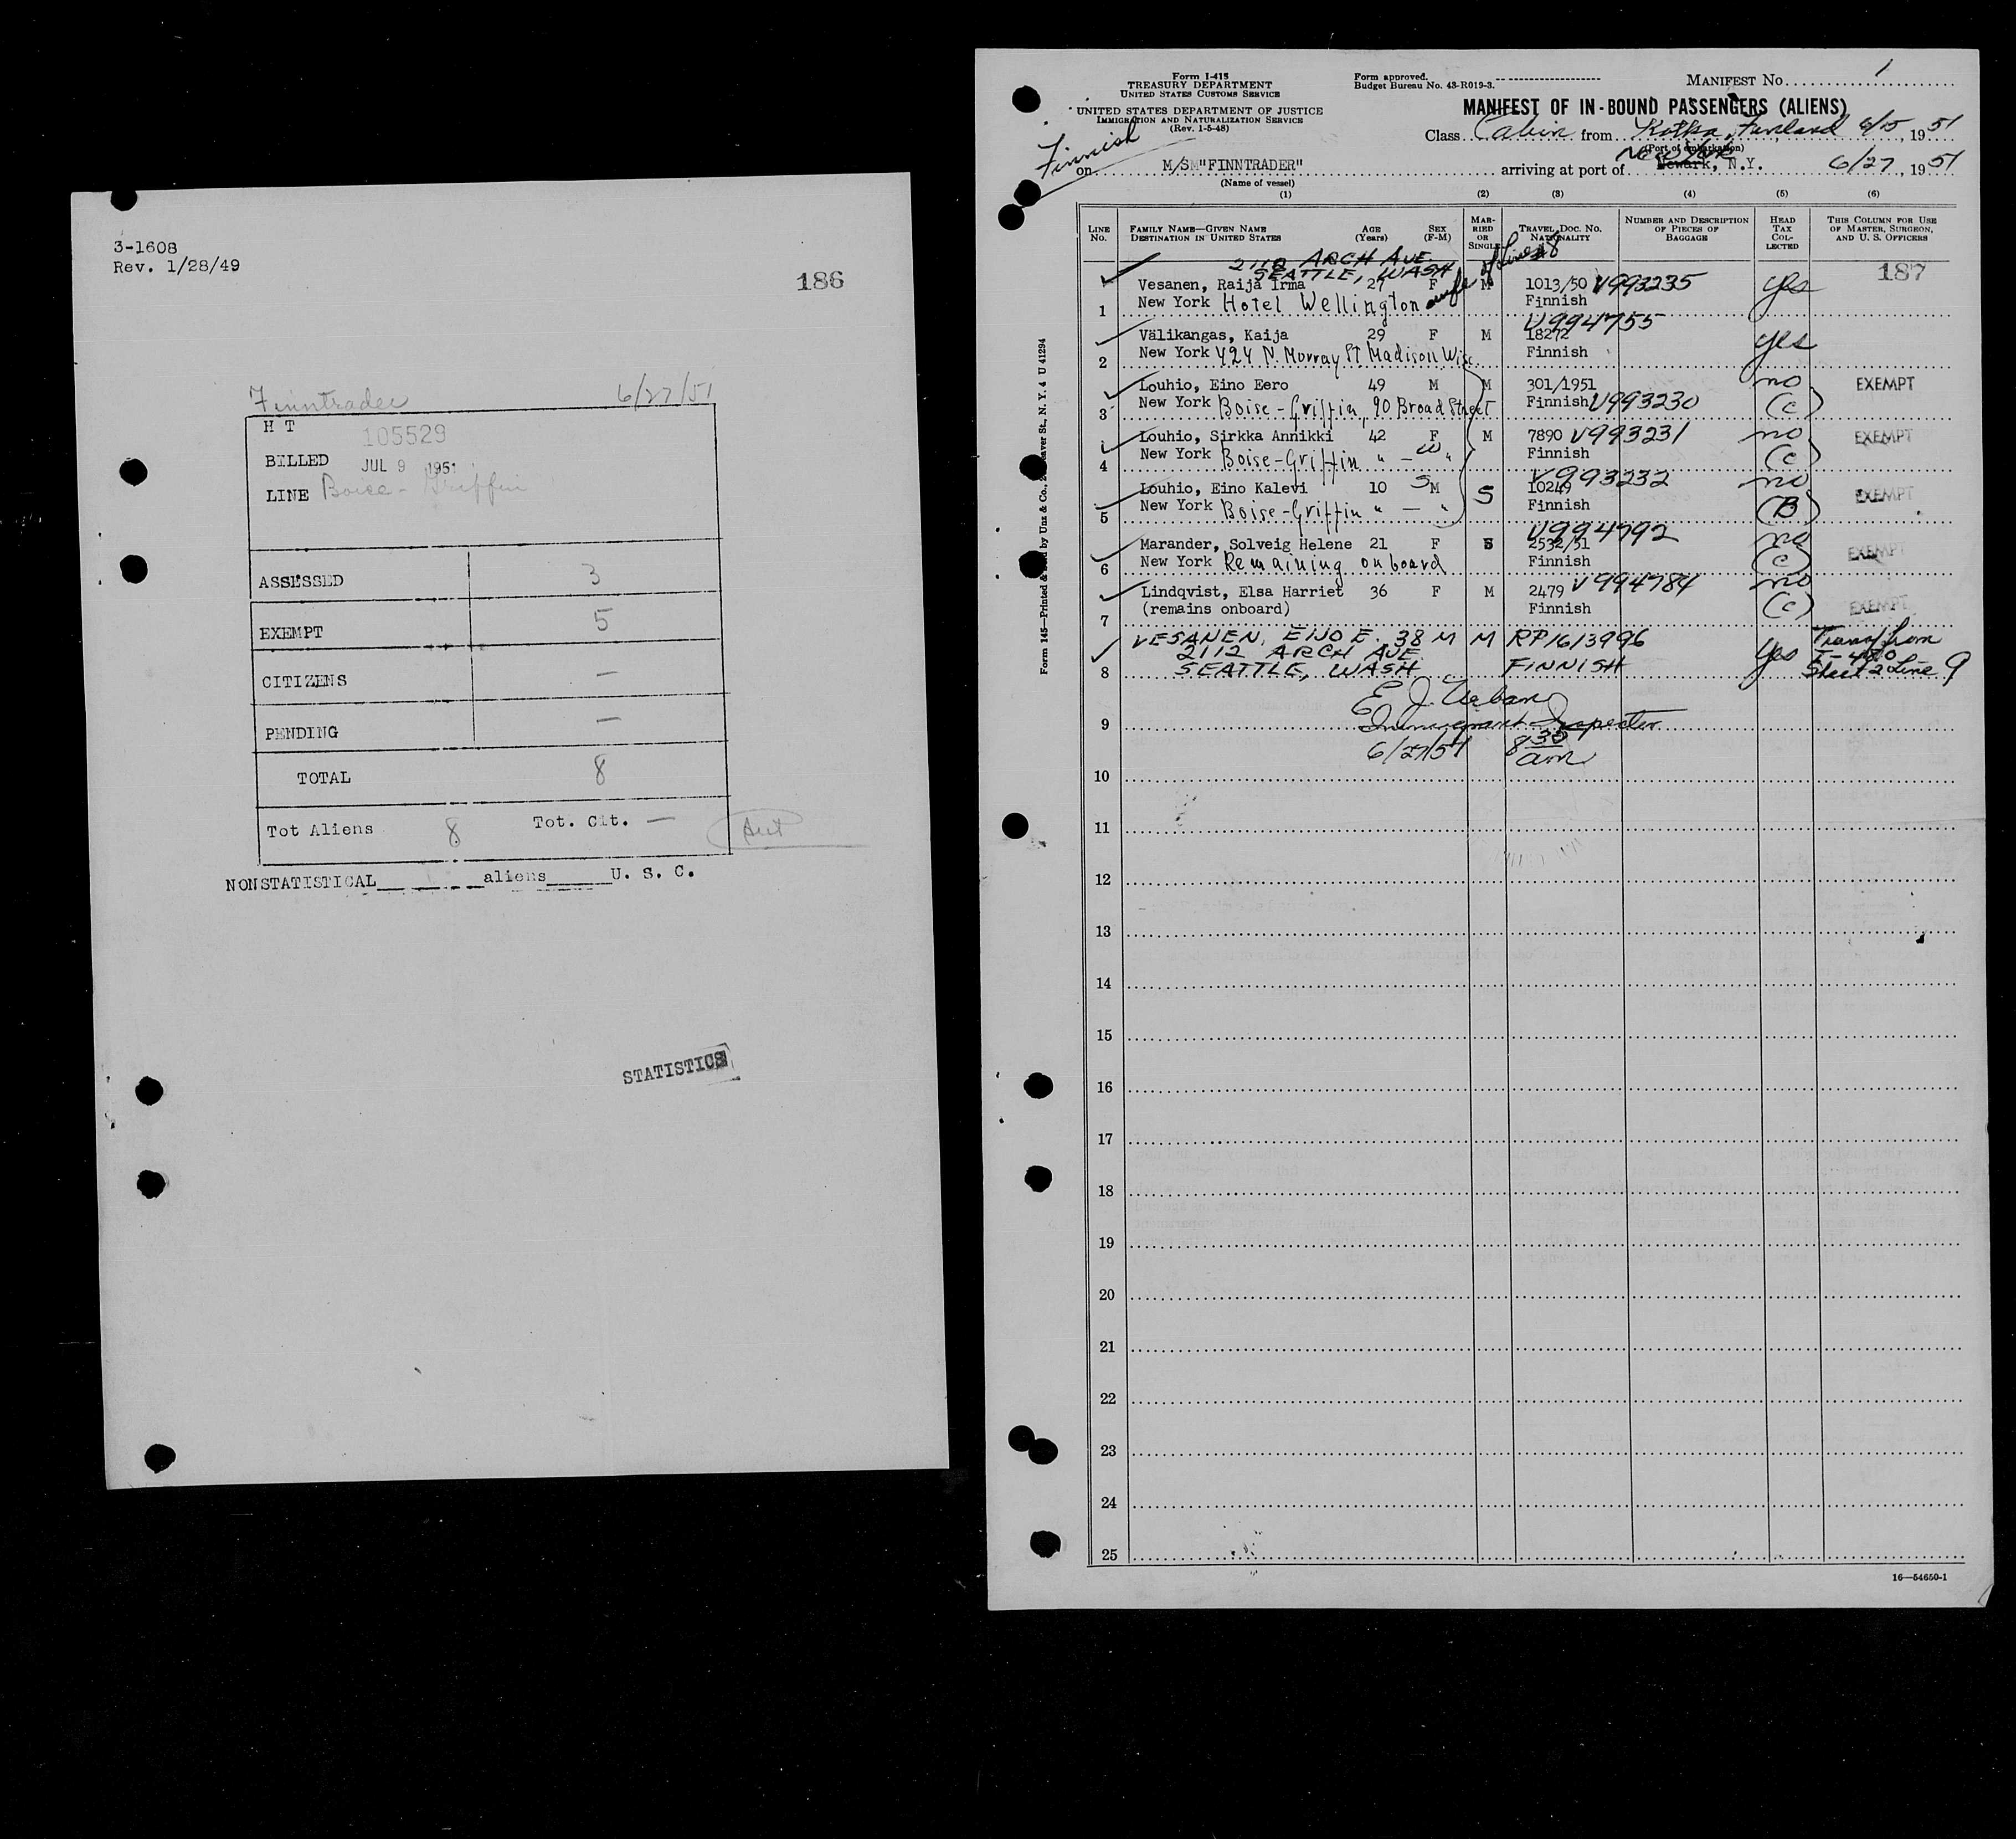 3-1608
Rev. 1/28/49
186
Finntrader 6/27/51
H T 105529
BILLED JUL 9 1951
LINE Boise-Griffin
ASSESSED 3
EXEMPT 5
CITIZENS —
PENDING —
TOTAL 8
Tot Aliens 8 Tot. Cit. —
NONSTATISTICAL aliens U. S. C.
STATISTICS
Form I-415
TREASURY DEPARTMENT
UNITED STATES CUSTOMS SERVICE
UNITED STATES DEPARTMENT OF JUSTICE
IMMIGRATION AND NATURALIZATION SERVICE
(Rev. 1-5-48)
Form approved.
Budget Bureau No. 43-R019-3.
MANIFEST No. 1
MANIFEST OF IN-BOUND PASSENGERS (ALIENS)
Finnish
Class Cabin from Kotka, Finland 6/15, 1951
(Port of embarkation)
New York
on M/S "FINNTRADER" arriving at port of Newark, N.Y. 6/27, 1951
(Name of vessel)
(1) (2) (3) (4) (5) (6)
LINE No.
FAMILY NAME—GIVEN NAME
DESTINATION IN UNITED STATES
AGE (Years)
SEX (F-M)
MARRIED OR SINGLE
TRAVEL DOC. No.
NATIONALITY
NUMBER AND DESCRIPTION OF PIECES OF BAGGAGE
HEAD TAX COLLECTED
THIS COLUMN FOR USE OF MASTER, SURGEON, AND U. S. OFFICERS
187
2112 ARCH AVE
SEATTLE, WASH
wife of Line 8
1 Vesanen, Raija Irma 27 F M 1013/50 V993235 yes
New York Hotel Wellington Finnish
V994755
2 Välikangas, Kaija 29 F M 18272 yes
New York 424 N. Murray St Madison Wisc. Finnish
3 Louhio, Eino Eero 49 M M 301/1951 no EXEMPT
New York Boise-Griffin, 90 Broad Street Finnish V993230 (C)
4 Louhio, Sirkka Annikki 42 F M 7890 V993231 no EXEMPT
New York Boise-Griffin " — " W Finnish (C)
V993232
5 Louhio, Eino Kalevi 10 S M S 10249 no EXEMPT
New York Boise-Griffin " — " Finnish (B)
V994792
6 Marander, Solveig Helene 21 F S 2532/51 no EXEMPT
New York Remaining onboard Finnish (C)
7 Lindqvist, Elsa Harriet 36 F M 2479 V994784 no EXEMPT
(remains onboard) Finnish (C)
8 VESANEN, EIJO E. 38 M M RP1613996 yes Transf from
2112 ARCH AVE I-480
SEATTLE, WASH FINNISH Sheet 2 Line 9
9 E J. Urban
Immigrant Inspector
6/27/51 8 30 am
10
11
12
13
14
15
16
17
18
19
20
21
22
23
24
25
16—54650-1